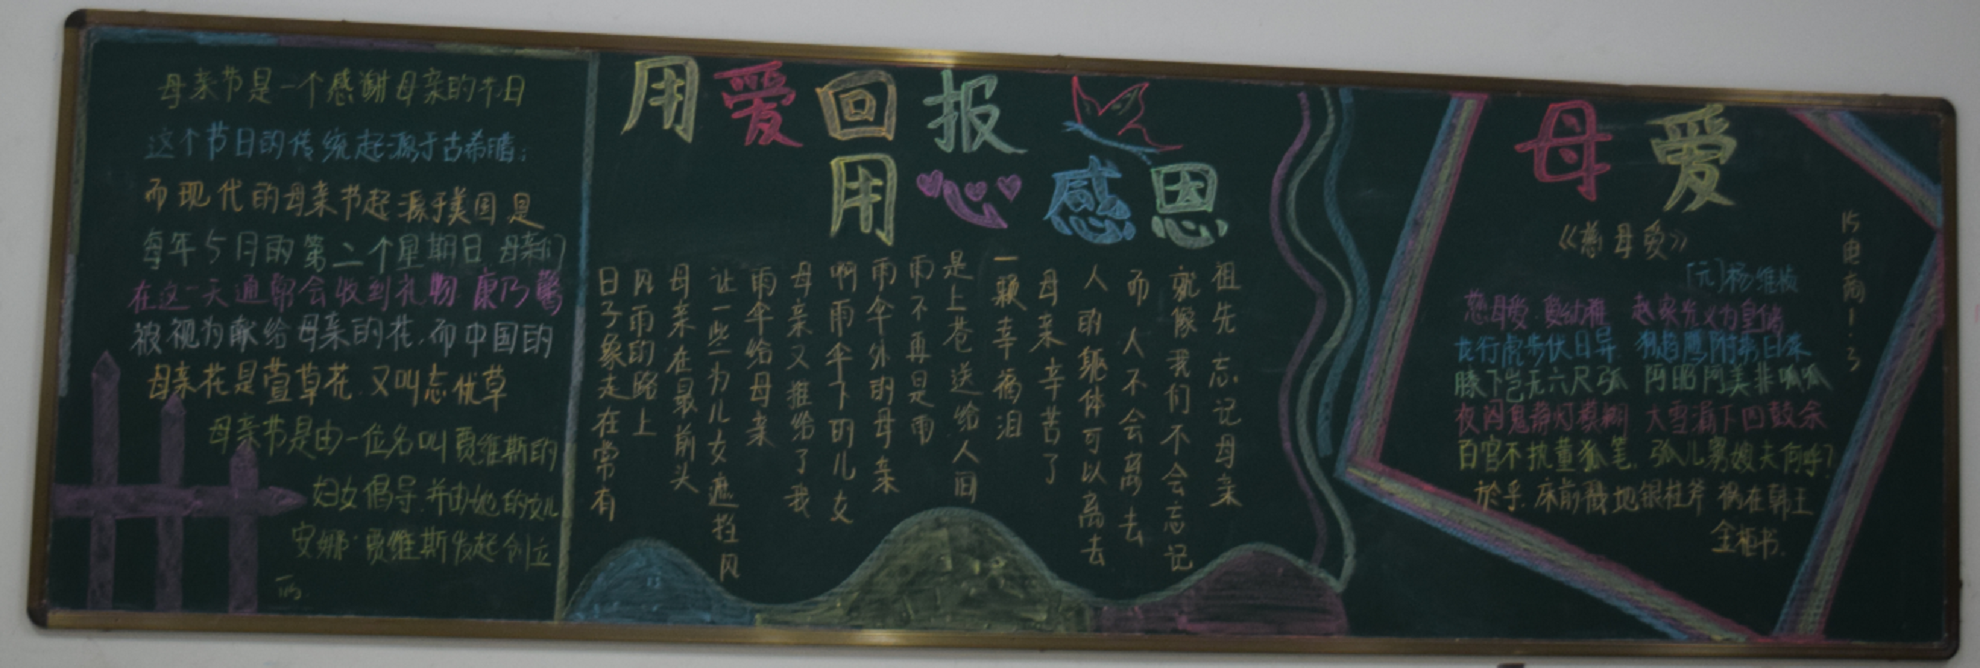 母亲节是一个感谢母亲的节日
这个节日的传统起源于古希腊;
而现代的母亲节起源于美国是
每年5月的第二个星期日,母亲们
在这一天通常会收到礼物 康乃馨
被视为献给母亲的花,而中国的
母亲花是萱草花,又叫忘忧草
母亲节是由一位名叫贾维斯的
妇女倡导,并由她的女儿
安娜·贾维斯发起创立
用爱回报
用心感恩
日子象走在常有
风雨的路上
母亲在最前头
让一些为儿女遮挡风
雨伞给母亲
母亲又推给了我
啊雨伞下的儿女
雨伞外的母亲
雨不再是雨
是上苍送给人间
一颗幸福泪
母亲辛苦了
人的躯体可以离去
而人不会离去
就像我们不会忘记
祖先忘记母亲
母爱
《慈母爱》
[元]杨维桢
慈母爱,爱幼雏 赵家光义为皇储
龙行虎步状日异 狗趋鹰附势日殊
膝下岂无六尺孤 阿昭阿美非呱呱
夜闼鬼静灯模糊 大雪漏下四鼓余
百官不执董狐笔,孤儿寡嫂夫何呼?
於乎,床前戳地银柱斧 祸在韩王
金柜书.
15电商1.3